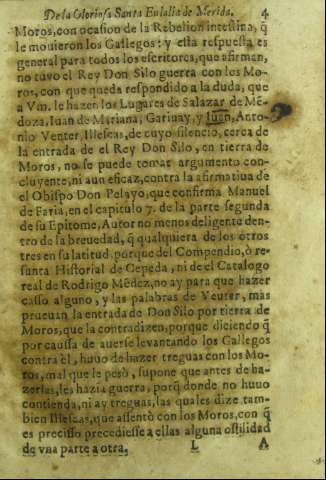 De la Gloriosa Santa Eulalia de Merida. 4
Moros, con ocasion de la Rebelion intestina, q̃
le mouieron los Gallegos: y esta respuesta es
general para todos los escritores, que afirman,
no tuvo el Rey Don Silo guerra con los Mo-
ros, con que queda respondido a la duda, que
a Vm. le hazen los Lugares de Salazar de Mẽ-
doza, Iuan de Mariana, Garíuay, y Iuan, Anto-
nio Venter, Illescas, de cuyo silencio, cerca de
la entrada de el Rey Don Silo, en tierra de
Moros, no se puede tomar argumento con-
cluyente, ni aun eficaz, contra la afirmatiua de
el Obispo Don Pelayo, que confirma Manuel
de Faria, en el capitulo 7. de la parte segunda
de su Epitome, Autor no menos deligente den-
tro de la breuedad, q̃ qualquiera de los otros
tres en su latitud, porque del Compendio, ò re-
sunta Historial de Cepeda, ni de el Catalogo
real de Rodrigo Mẽdez, no ay para que hazer
casso alguno, y las palabras de Veuter, mas
prueuan la entrada de Don Silo por tierra de
Moros, que la contradizen, porque diciendo q̃
por caussa de auerse leuantando los Gallegos
contra èl, huuo de hazer treguas con los Mo-
ros, mal que le pesò, supone que antes de ha-
zerlas, les hazia guerra, porq̃ donde no huuo
contienda, ni ay treguas, las quales dize tam-
bien Illescas, que assentò con los Moros, con q̃
es precisso precediesse a ellas alguna ostilidad
de vna parte a otra. L A